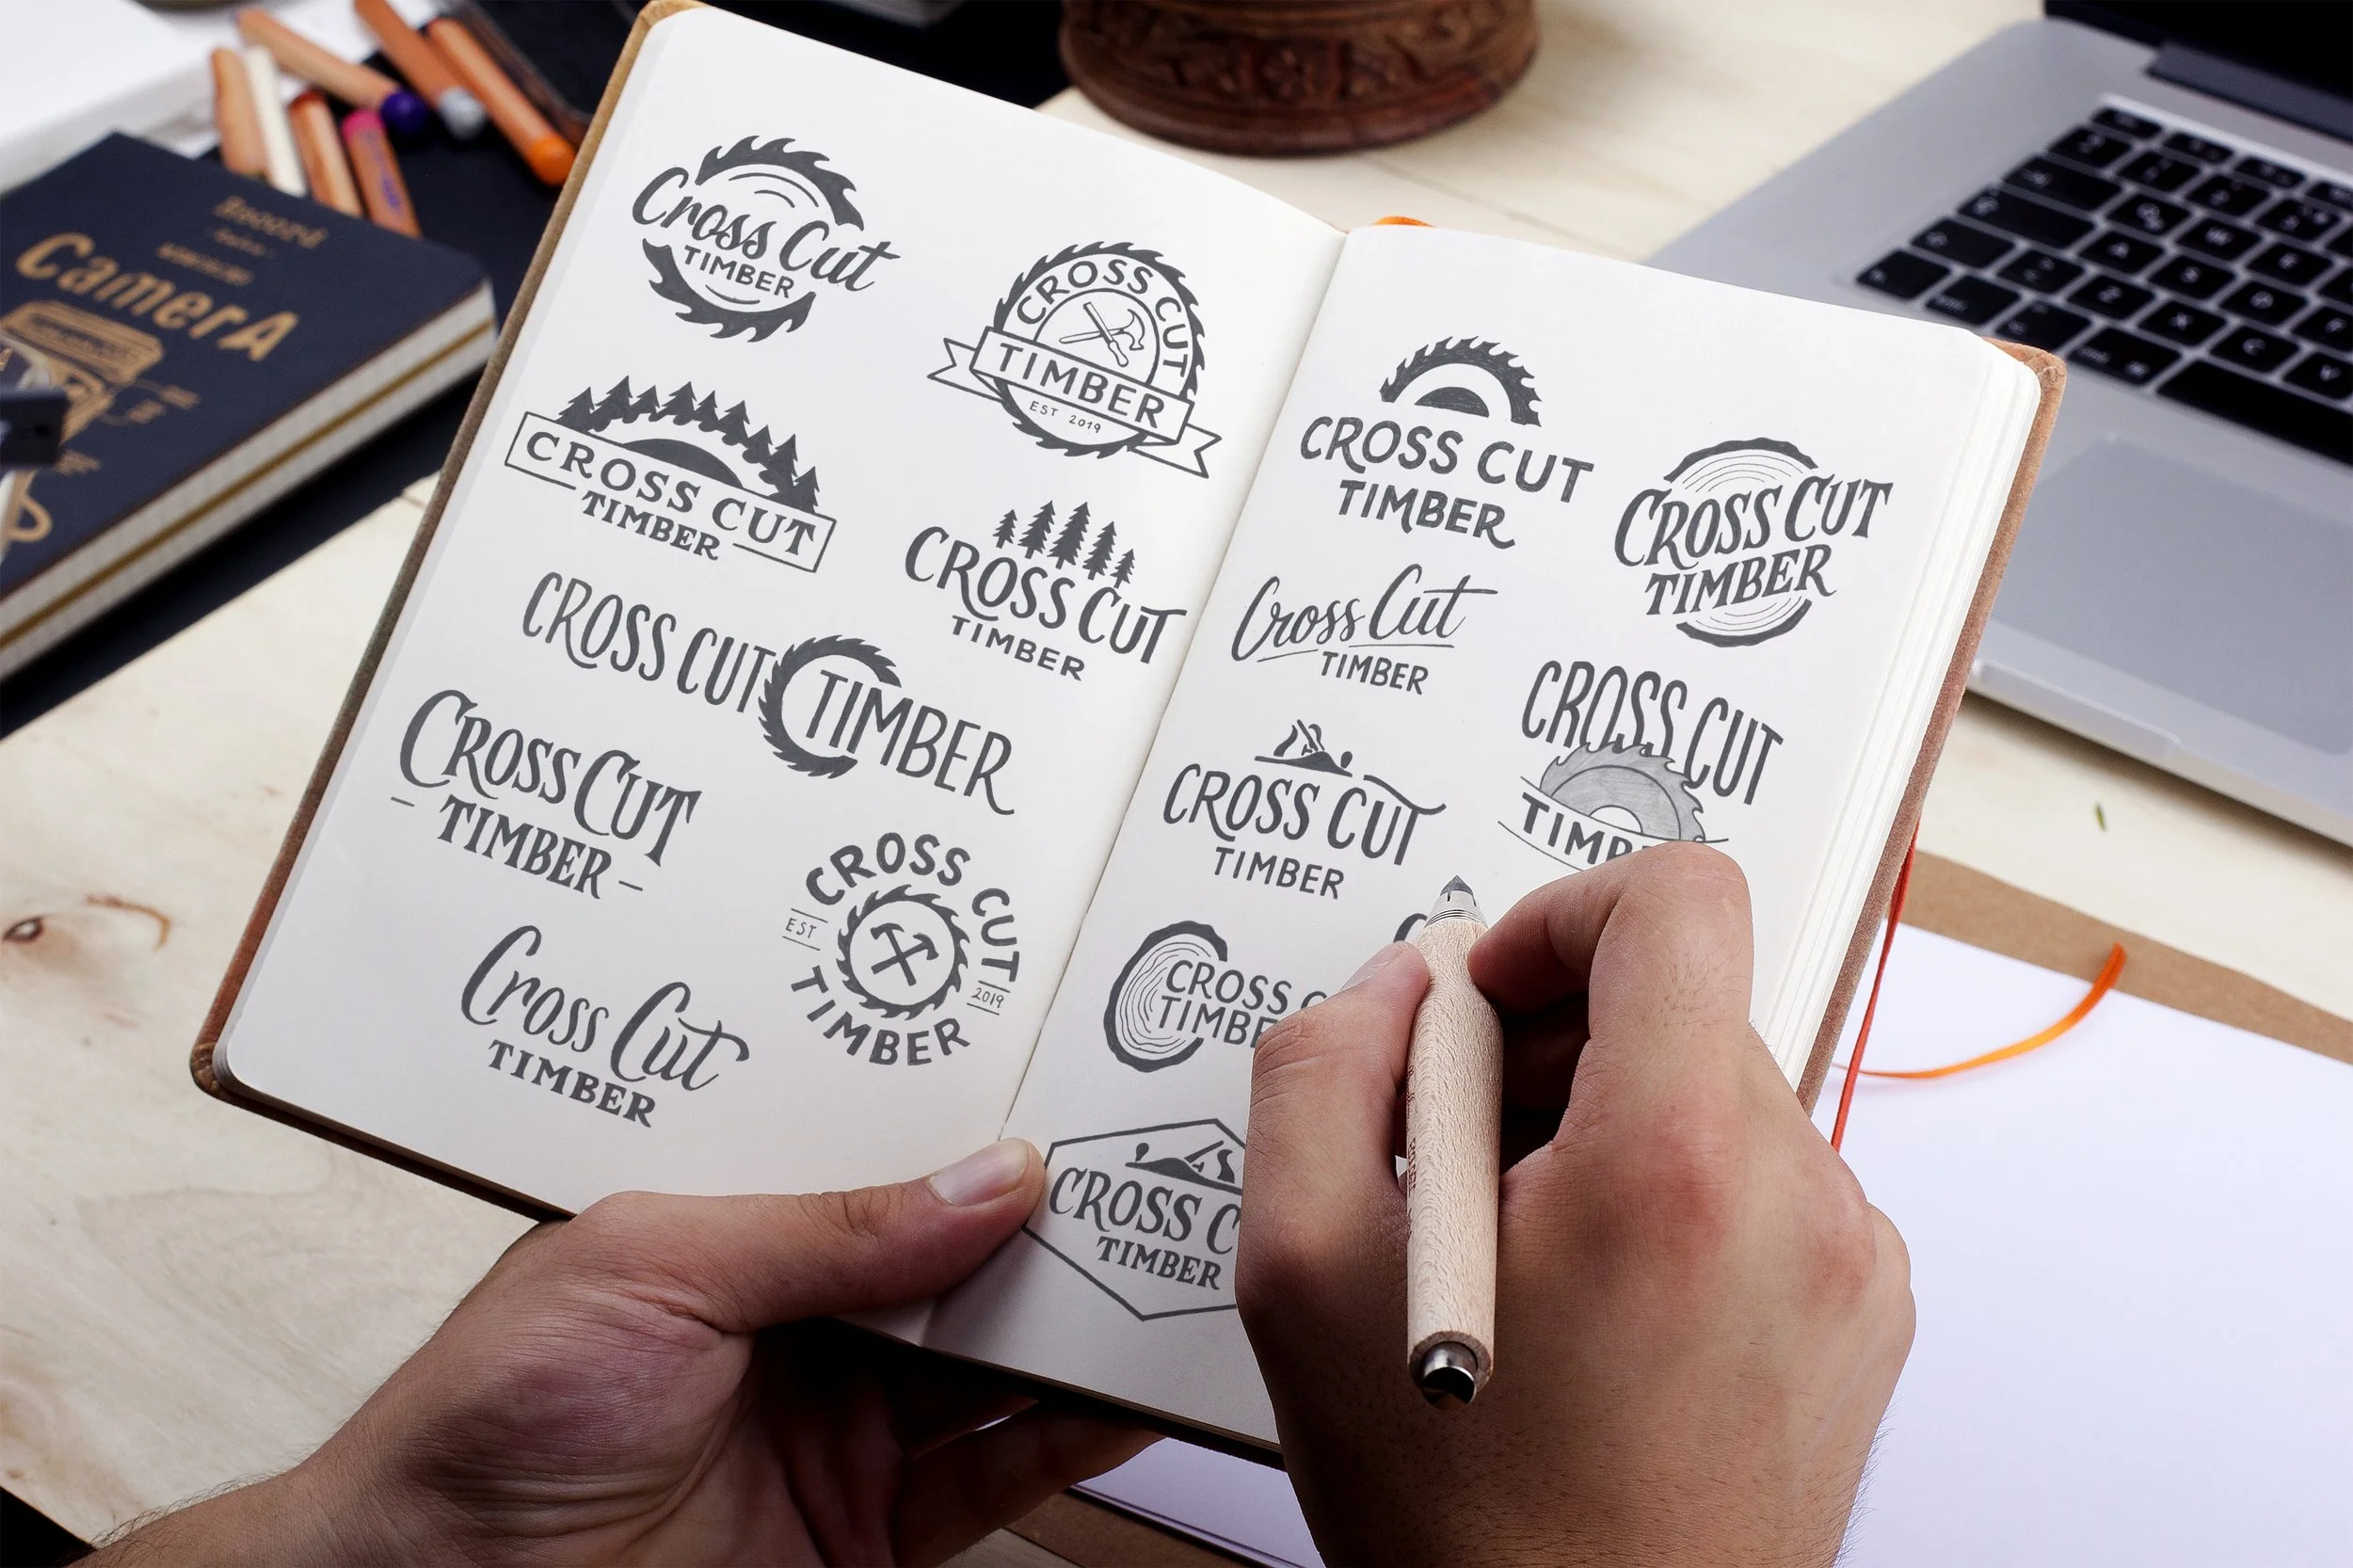 Record
CamerA
Cross Cut
TIMBER
CROSS CUT
TIMBER
EST 2019
CROSS CUT
TIMBER
CROSS CUT
TIMBER
CROSS CUT TIMBER
CROSS CUT
- TIMBER -
CROSS CUT
EST
2019
TIMBER
Cross Cut
TIMBER
CROSS CUT
TIMBER
CROSS CUT
TIMBER
Cross Cut
TIMBER
CROSS CUT
CROSS CUT
TIMBER
CROSS
TIMBER